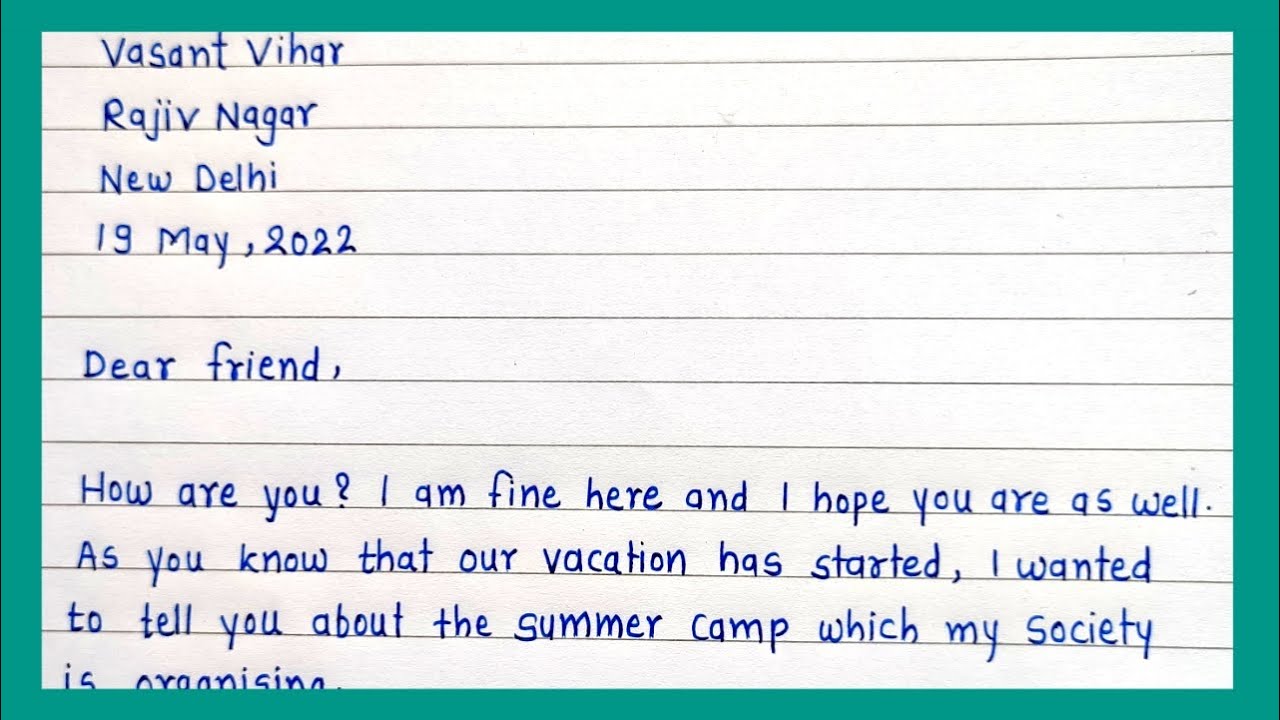 Vasant Vihar
Rajiv Nagar
New Delhi
19 May, 2022
Dear friend,
How are you? I am fine here and I hope you are as well.
As you know that our vacation has started, I wanted
to tell you about the summer camp which my society
is organising.